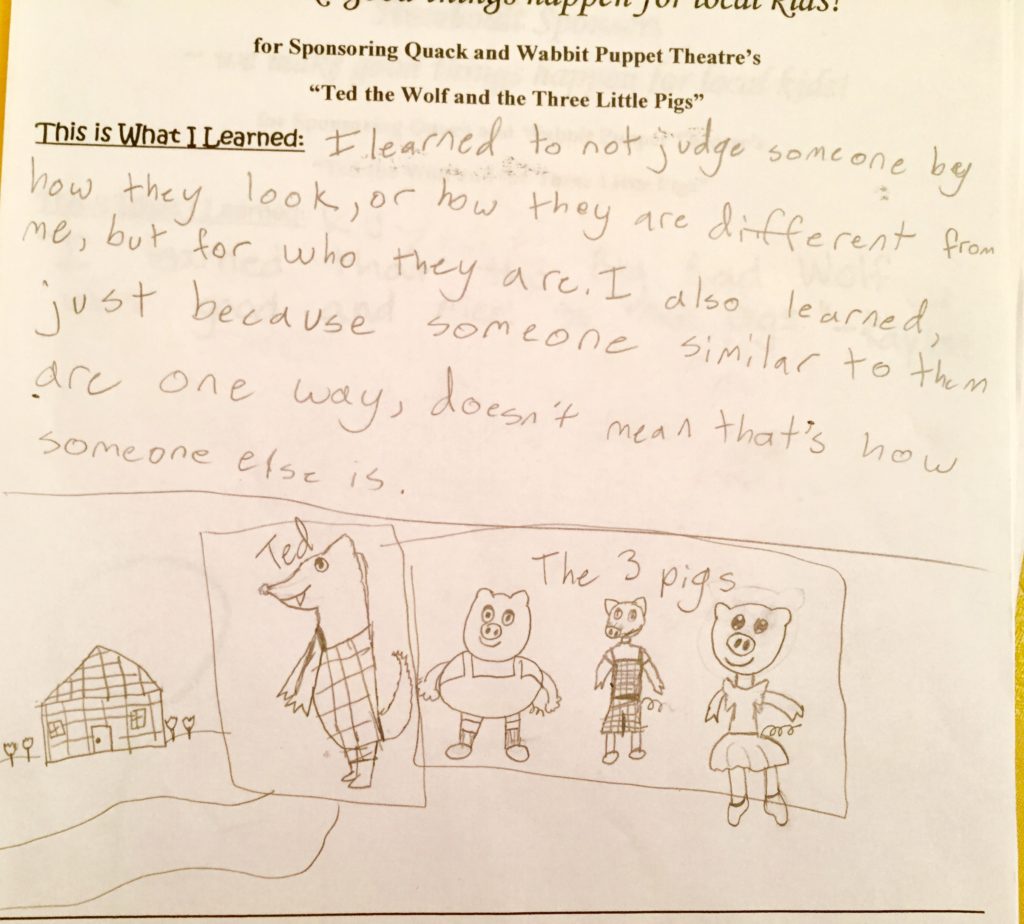 good things happen for local kids!
for Sponsoring Quack and Wabbit Puppet Theatre's
"Ted the Wolf and the Three Little Pigs"
This is What I Learned: I learned to not judge someone by
how they look, or how they are different from
me, but for who they are. I also learned,
just because someone similar to them
are one way, doesn't mean that's how
someone else is.
Ted
The 3 pigs